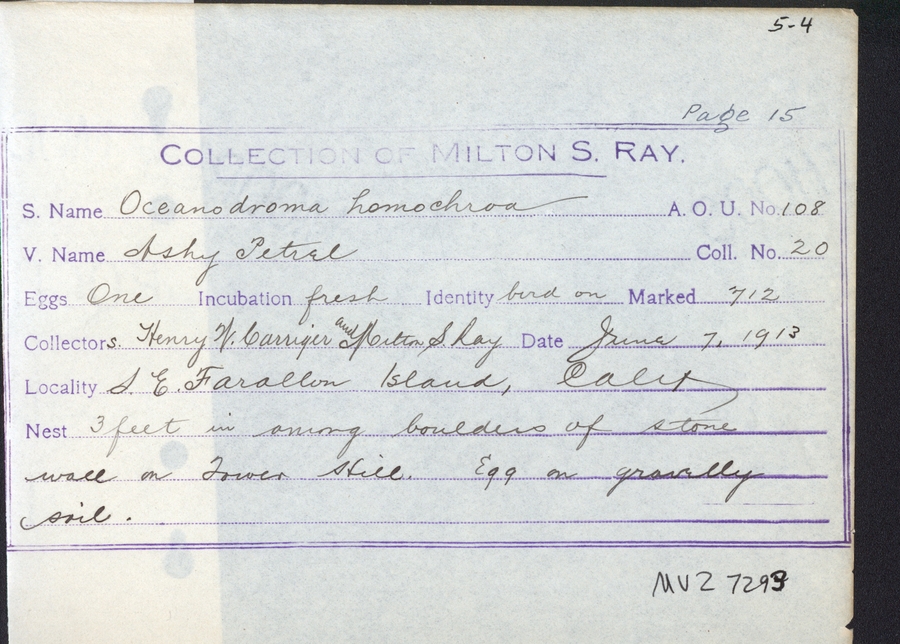 5-4
Page 15
COLLECTION OF MILTON S. RAY.
S. Name Oceanodroma homochroa A. O. U. No. 108
V. Name Ashy Petrel Coll. No. 20
Eggs One Incubation fresh Identity bird on Marked 712
Collectors. Henry W. Carriger and Milton S Ray Date June 7, 1913
Locality S. E. Farallon Island, Calif
Nest 3 feet in among boulders of stone
wall on Tower Hill. Egg on gravelly
soil.
MVZ 7293